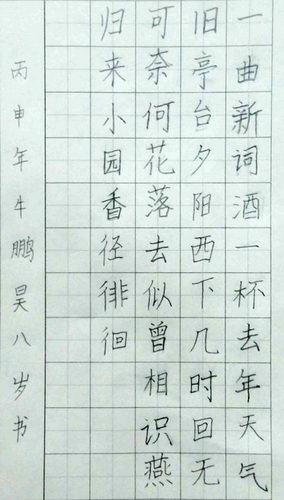 一曲新词酒一杯去年天气
旧亭台夕阳西下几时回无
可奈何花落去似曾相识燕
归来小园香径徘徊
丙申年牛鹏昊八岁书